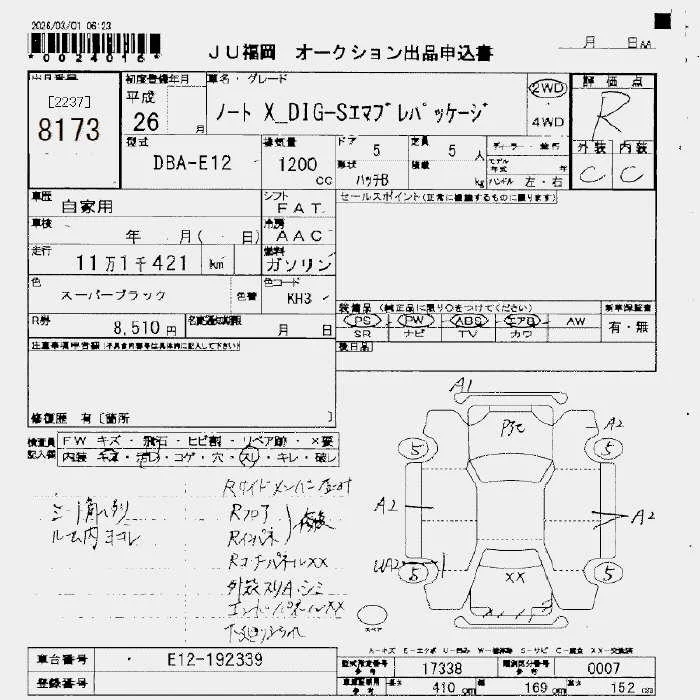 2026/03/01 06:23
*0024016*
JU福岡 オークション出品申込書
月 日
出品番号
[2237]
8173
初度登録年月
平成
26 月
車名・グレード
ノート X_DIG-Sエマブレパッケージ
2WD
4WD
評価点
R
外装 内装
C C
型式
DBA-E12
排気量
1200
cc
ドア
5
定員
5 人
形状
ハッチB
積載
kg
ディーラー・並行
モデル年式 年
ハンドル 左・右
車歴
自家用
シフト
FAT
セールスポイント(正常に機能するものに限ります)
車検
年 月( 日)
冷房
AAC
走行
11万1千421 km
燃料
ガソリン
色
スーパーブラック
色替
色コード
KH3
装備品(純正品に限り○をつけてください)
PS PW ABS エアB AW
SR ナビ TV カワ
新車保証書
有・無
R券
8,510 円
名変通知期限
月 日
後日品
注意事項申告欄(不具合内容等は具体的に記入して下さい)
修復歴 有〔箇所 〕
検査員記入欄
FW キズ・飛石・ヒビ割・リペア跡・×要
内装 キズ・汚レ・コゲ・穴・スレ・キレ・破レ
シート角ヘリ
ルーム内ヨゴレ
Rサイドメンバー
Rフロア
Rインパネ
Rコーナーパネル××
外装スリA・シミ
エンドパネル××
A1
P3C
A2
5
5
A2
A2
UA2
5
5
××
スペア
A-キズ E-エクボ U-凹み W-補修跡 S-サビ C-腐食 ××-交換済
車台番号
E12-192339
登録番号
型式指定番号
参考
17338
類別区分番号
参考
0007
車両諸元用
参考
長さ
410 cm
幅
169 cm
高さ
152 cm